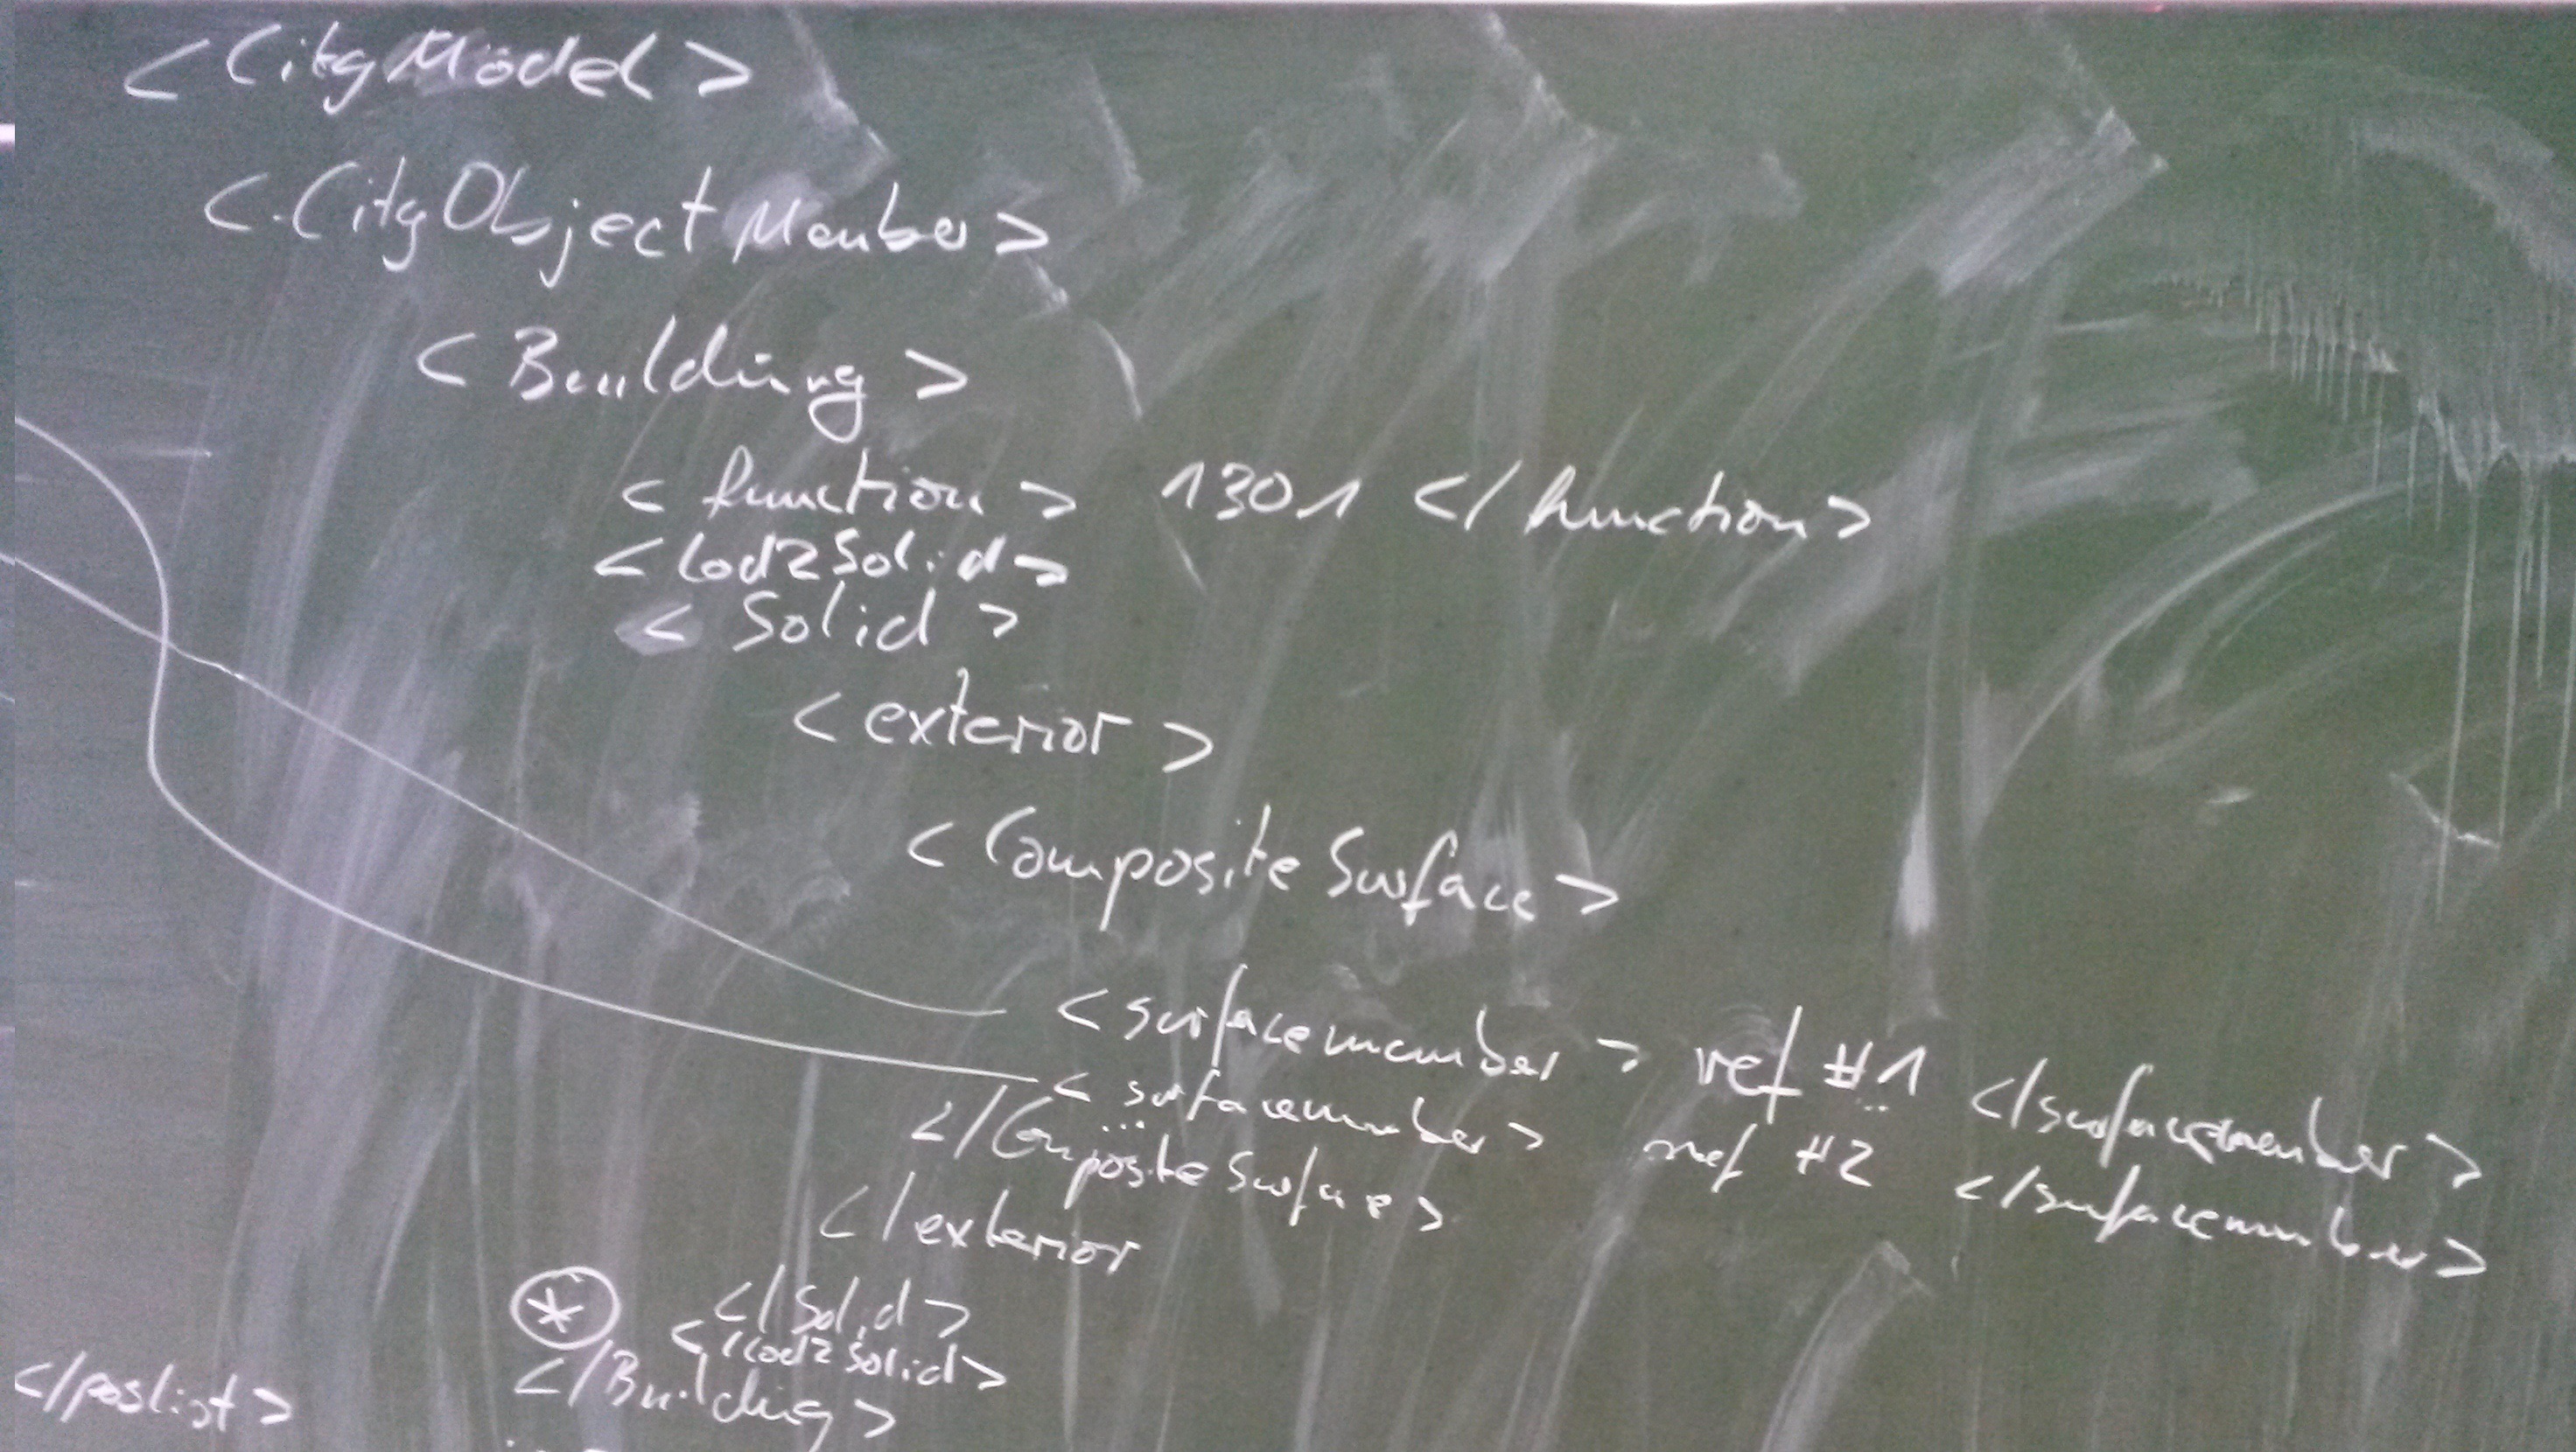 <CityModel>
<CityObjectMember>
<Building>
<function> 1301 </function>
<lod2Solid>
<Solid>
<exterior>
<CompositeSurface>
<surfacemember> ref #1 </surfacemember>
<surfacemember> ref #2 </surfacemember>
...
</CompositeSurface>
</exterior
* </Solid>
</lod2Solid>
</Building>
</poslist>